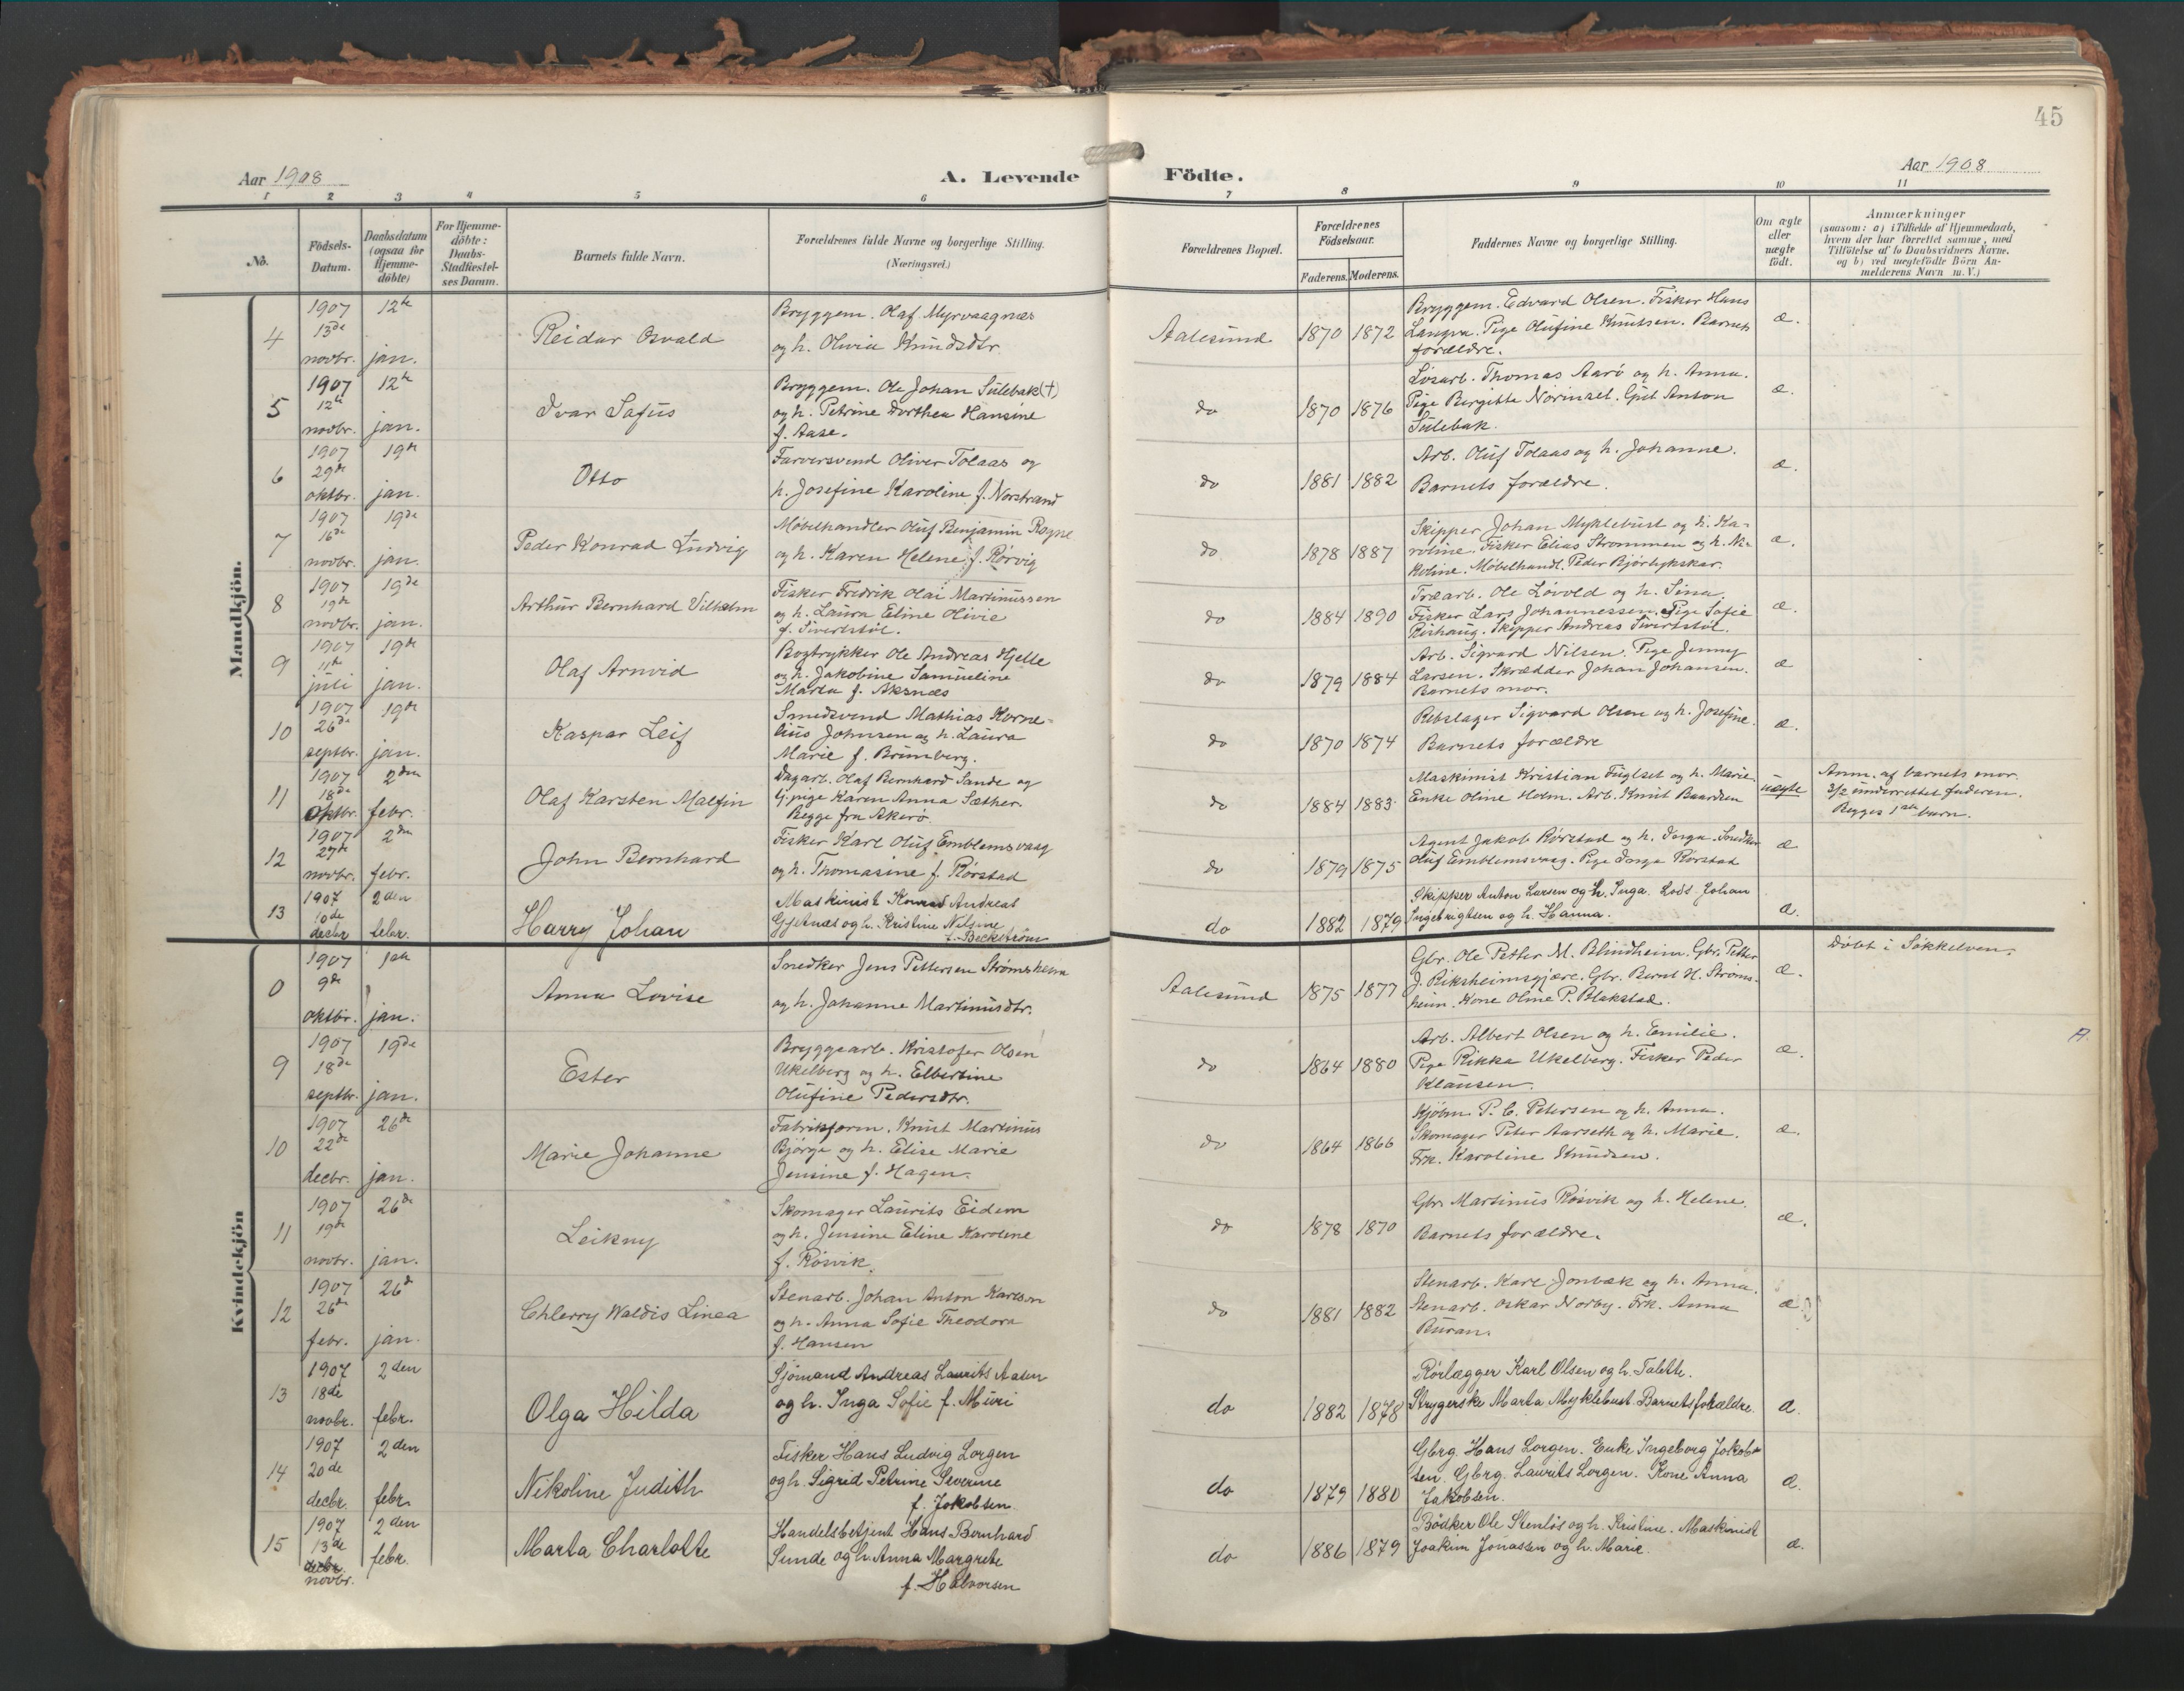 45
Aar 1908
A. Levende
Födte.
Aar 1908
1 2 3 4 5 6 7 8 9 10 11
No.
Födsels-Datum.
Daabsdatum (ogsaa for Hjemme-döbte)
For Hjemme-döbte: Daabs-Stadfæstel-ses Datum.
Barnets fulde Navn.
Forældrenes fulde Navne og borgerlige Stilling. (Næringsvei.)
Forældrenes Bopæl.
Forældrenes Födselsaar.
Faderens. Moderens.
Faddernes Navne og borgerlige Stilling.
Om ægte eller uægte födt.
Anmærkninger
(saasom: a) i Tilfælde af Hjemmedaab,
hvem der har forrettet samme, med
Tilföielse af to Daabsvidners Navne.
og b) ved uægtefödte Börn An-
melderens Navn m. V.)
Mandkjön.
4 1907 13de novbr. 12te jan. Reidar Osvald
Bryggem. Olaf Myrvaagnæs
og h. Olivia Knudsdtr.
Aalesund 1870 1872
Bryggem. Edvard Olsen. Fisker Hans
Langva. Pige Olufine Knutsen. Barnets
forældre.
æ.
5 1907 12te novbr. 12te jan. Ivar Sofus
Bryggem. Ole Johan Sulebak (†)
og h. Petrine Dorthea Hansine
f. Aase.
do 1870 1876
Løsarb. Thomas Aarö og h. Anna.
Pige Birgitte Nörinset. Gut Anton
Sulebak.
æ.
6 1907 29de oktbr. 19de jan. Otto
Farversvend Oliver Tolaas og
h. Josefine Karoline f. Norstrand
do 1881 1882
Arb. Oluf Tolaas og h. Johanne.
Barnets forældre.
æ.
7 1907 16de novbr. 19de jan. Peder Konrad Ludvig
Møbelhandler Oluf Benjamin Rogne
og h. Karen Helene f. Rørvig
do 1878 1887
Skipper Johan Myklebust og h. Ka-
roline. Fisker Elias Strømmen og h. Ni-
koline. Møbelhandl. Peder Bjørlykskar.
æ.
8 1907 19de novbr. 19de jan. Arthur Bernhard Vilhelm
Fisker Fredrik Olai Martinussen
og h. Laura Eline Olivie
f. Sivertstøl.
do 1884 1890
Træarb. Ole Løvold og h. Sina.
Fisker Lars Johannessen. Pige Sofie
Rishaug. Skipper Andreas Sivertstøl.
æ.
9 1907 11te juli 19de jan. Olaf Arnvid
Bogtrykker Ole Andreas Hjelle
og h. Jakobine Samueline
Marta f. Aksnæs
do 1879 1884
Arb. Sigvard Nilsen. Pige Jenny
Larsen. Skrædder Johan Johansen.
Barnets mor.
æ
10 1907 26de septbr. 19de jan. Kaspar Leif
Smedsvend Mathias Korne-
lius Johnsen og h. Laura
Marie f. Brimberg.
do 1870 1874
Rebslager Sigvard Olsen og h. Josefine.
Barnets forældre
æ.
11 1907 18de oktbr. 2den febr. Olaf Karsten Malfin
Dagarb. Olaf Bernhard Sande og
tj.pige Karen Anna Sæther.
Begge fra Akerö
do 1884 1883
Maskinist Kristian Fuglset og h. Marie.
Enke Oline Holm. Arb. Knut Baardsen
uægte
Anm. af barnets mor.
3/2 underrettet faderen.
Begges 1ste barn.
12 1907 27de novbr. 2den febr. John Bernhard
Fisker Karl Oluf Emblemsvaag
og h. Thomasine f. Rørstad
do 1879 1875
Agent Jakob Rørstad og h. Inga. Snedker
Oluf Emblemsvaag. Pige Inga Rørstad
æ
13 1907 10de decbr 2den febr. Harry Johan
Maskinist Konrad Andreas
Gjetnæs og h. Kristine Nilsine
f. Beckström
do 1882 1879
Skipper Anton Larsen og h. Inga. Lods Johan
Ingebrigtsen og h. Hanna.
æ.
Kvindekjön
0 1907 9de oktbr. 1ste jan. Anna Lovise
Snedker Jens Pettersen Strømsheim
og h. Johanne Martinusdtr.
Aalesund 1875 1877
Gbr. Ole Petter M. Blindheim. Gbr. Petter
J. Riksheimsgjære. Gbr. Bernt H. Strøms-
heim. Kone Oline P. Blakstad.
æ.
Döbt i Søkkelven.
9 1907 18de septbr. 19de jan. Ester
Bryggearb. Kristofer Olsen
Ukelberg og h. Elbertine
Olufine Pedersdtr.
do 1864 1880
Arb. Albert Olsen og h. Emilie.
Pige Rikka Ukelberg. Fisker Peder
Klausen.
æ.
10 1907 22de decbr. 26de jan. Marie Johanne
Fabrikform. Knut Martinus
Bjørge og h. Elise Marie
Jensine f. Hagen.
do 1864 1866
Kjøbm. P. C. Petersen og h. Anna.
Skomager Peter Aarseth og h. Marie.
Frk. Karoline Knudsen.
æ.
11 1907 19de novbr. 26de jan. Leikny
Skomager Laurits Eidem
og h. Jensine Eline Karoline
f. Rösvik.
do 1878 1870
Gbr. Martinus Rösvik og h. Helene.
Barnets forældre.
æ.
12 1907 26de febr. 26de jan. Chlerry Waldis Linea
Stenarb. Johan Anton Karlson
og h. Anna Sofie Theodora
f. Hansen
do 1881 1882
Stenarb. Karl Jonbæk og h. Anna.
Stenarb. Oskar Norby. Frk. Anna
Buran.
æ
13 1907 18de novbr. 2den febr. Olga Hilda
Sjömand Andreas Laurits Aasen
og h. Inga Sofie f. Muri
do 1882 1878
Rørlægger Karl Olsen og h. Talette.
Strygerske Marta Myklebust. Barnets forældre.
æ.
14 1907 20de decbr. 2den febr. Nikoline Judith
Fisker Hans Ludvig Lorgen
og h. Sigrid Petrine Severine
f. Jakobsen.
do 1879 1880
Gbrg. Hans Lorgen. Enke Ingeborg Jakob-
sen. Gbrg. Laurits Lorgen. Kone Anna
Jakobsen.
æ.
15 1907 13de decbr. novbr. 2den febr. Marta Charlotte
Handelsbetjent Hans Bernhard
Sunde og h. Anna Margrete
f. Halvorsen
do 1886 1879
Bödker Ole Stenløs og h. Kristine. Maskinist
Joakim Jonassen og h. Marie.
æ.